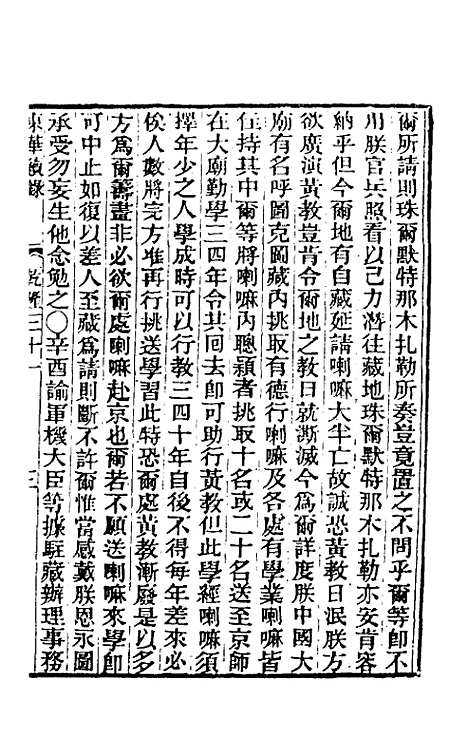 爾所請則珠爾默特那木扎勒所奏豈竟置之不問乎爾等卽不
用朕官兵照看以己力潛往藏地珠爾默特那木扎勒亦安肯容
納乎但今爾地有自藏延請喇嘛大半亡故誠恐黃教日泯朕方
欲廣演黃教豈肯令爾地之教日就漸滅今爲爾詳度朕中國大
廟有名呼圖克圖藏內挑取有德行喇嘛及各處有學業喇嘛皆
住持其中爾等將喇嘛內聰穎者挑取十名或二十名送至京師
在大廟勤學三四年令其回去卽可助行黃教但此學經喇嘛須
擇年少之人學成時可以行教三四十年自後不得每年差來必
俟人數將完方准再行挑送學習此特恐爾處黃教漸廢是以多
方爲爾籌畫非必欲爾處喇嘛赴京也爾若不願送喇嘛來學卽
可中止如復以差人至藏爲請則斷不許爾惟當感戴朕恩永圖
承受勿妄生他念勉之○辛酉諭軍機大臣等據駐藏辦理事務
東華續錄 乾隆三十一